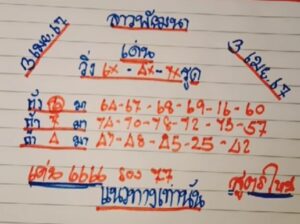 ลาวพัฒนา
3 เม.ย.67
เด่น
3 เม.ย.67
วิ่ง 6x - 4x - 7x รูด
ถ้า 6 มา 64-67-68-69-16-60
ถ้า 7 มา 74-70-78-72-75-57
ถ้า 4 มา 47-48-45-25-42
เด่น 6666 รอง 77
สูตรใหม่
แนวทางเท่านั้น